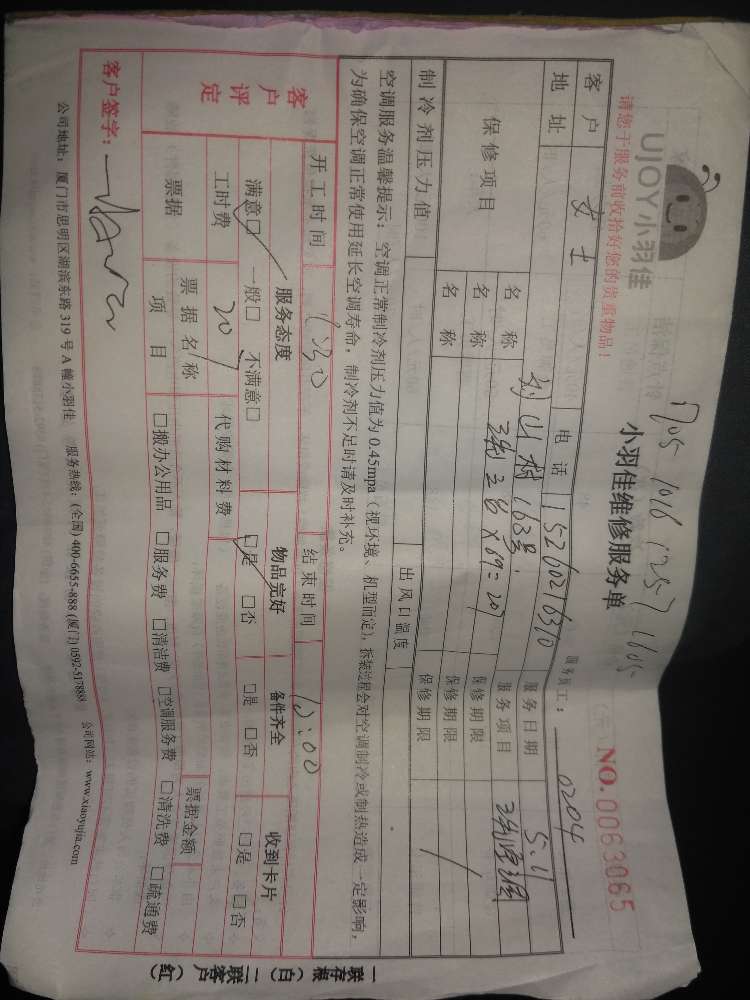 UJOY小羽佳
1705 1016 1257 1605
小羽佳维修服务单
NO.0063065
请您于服务前收拾好您的贵重物品!
服务员工: 0204
客户 女士 电话 15260216310 服务日期 5.4
地址 163号 服务项目
保修项目 名称 ×69=207 保修期限
名称 保修期限
名称 保修期限 /
制冷剂压力值 出风口温度
空调服务温馨提示:空调正常制冷剂压力值为0.45mpa(视环境、机型而定),拆装过程会对空调制冷或制热造成一定影响,
为确保空调正常使用延长空调寿命,制冷剂不足时请及时补充。
开工时间 结束时间 10:00
客户评定 服务态度 物品完好 备件齐全 收到卡片
满意□ 一般□ 不满意□ □是 □否 □是 □否 □是 □否
工时费 207 代购材料费
票据 票据名称 票据金额
项目 □搬办公用品 □服务费 □清洁费 □空调服务费 □清洗费 □疏通费
客户签字:
公司地址:厦门市思明区湖滨东路319号A幢小羽佳 服务热线:(全国)400-6655-888 (厦门)0592-517888 公司网站:www.xiaoyujia.com
一联存根(白) 二联客户(红)